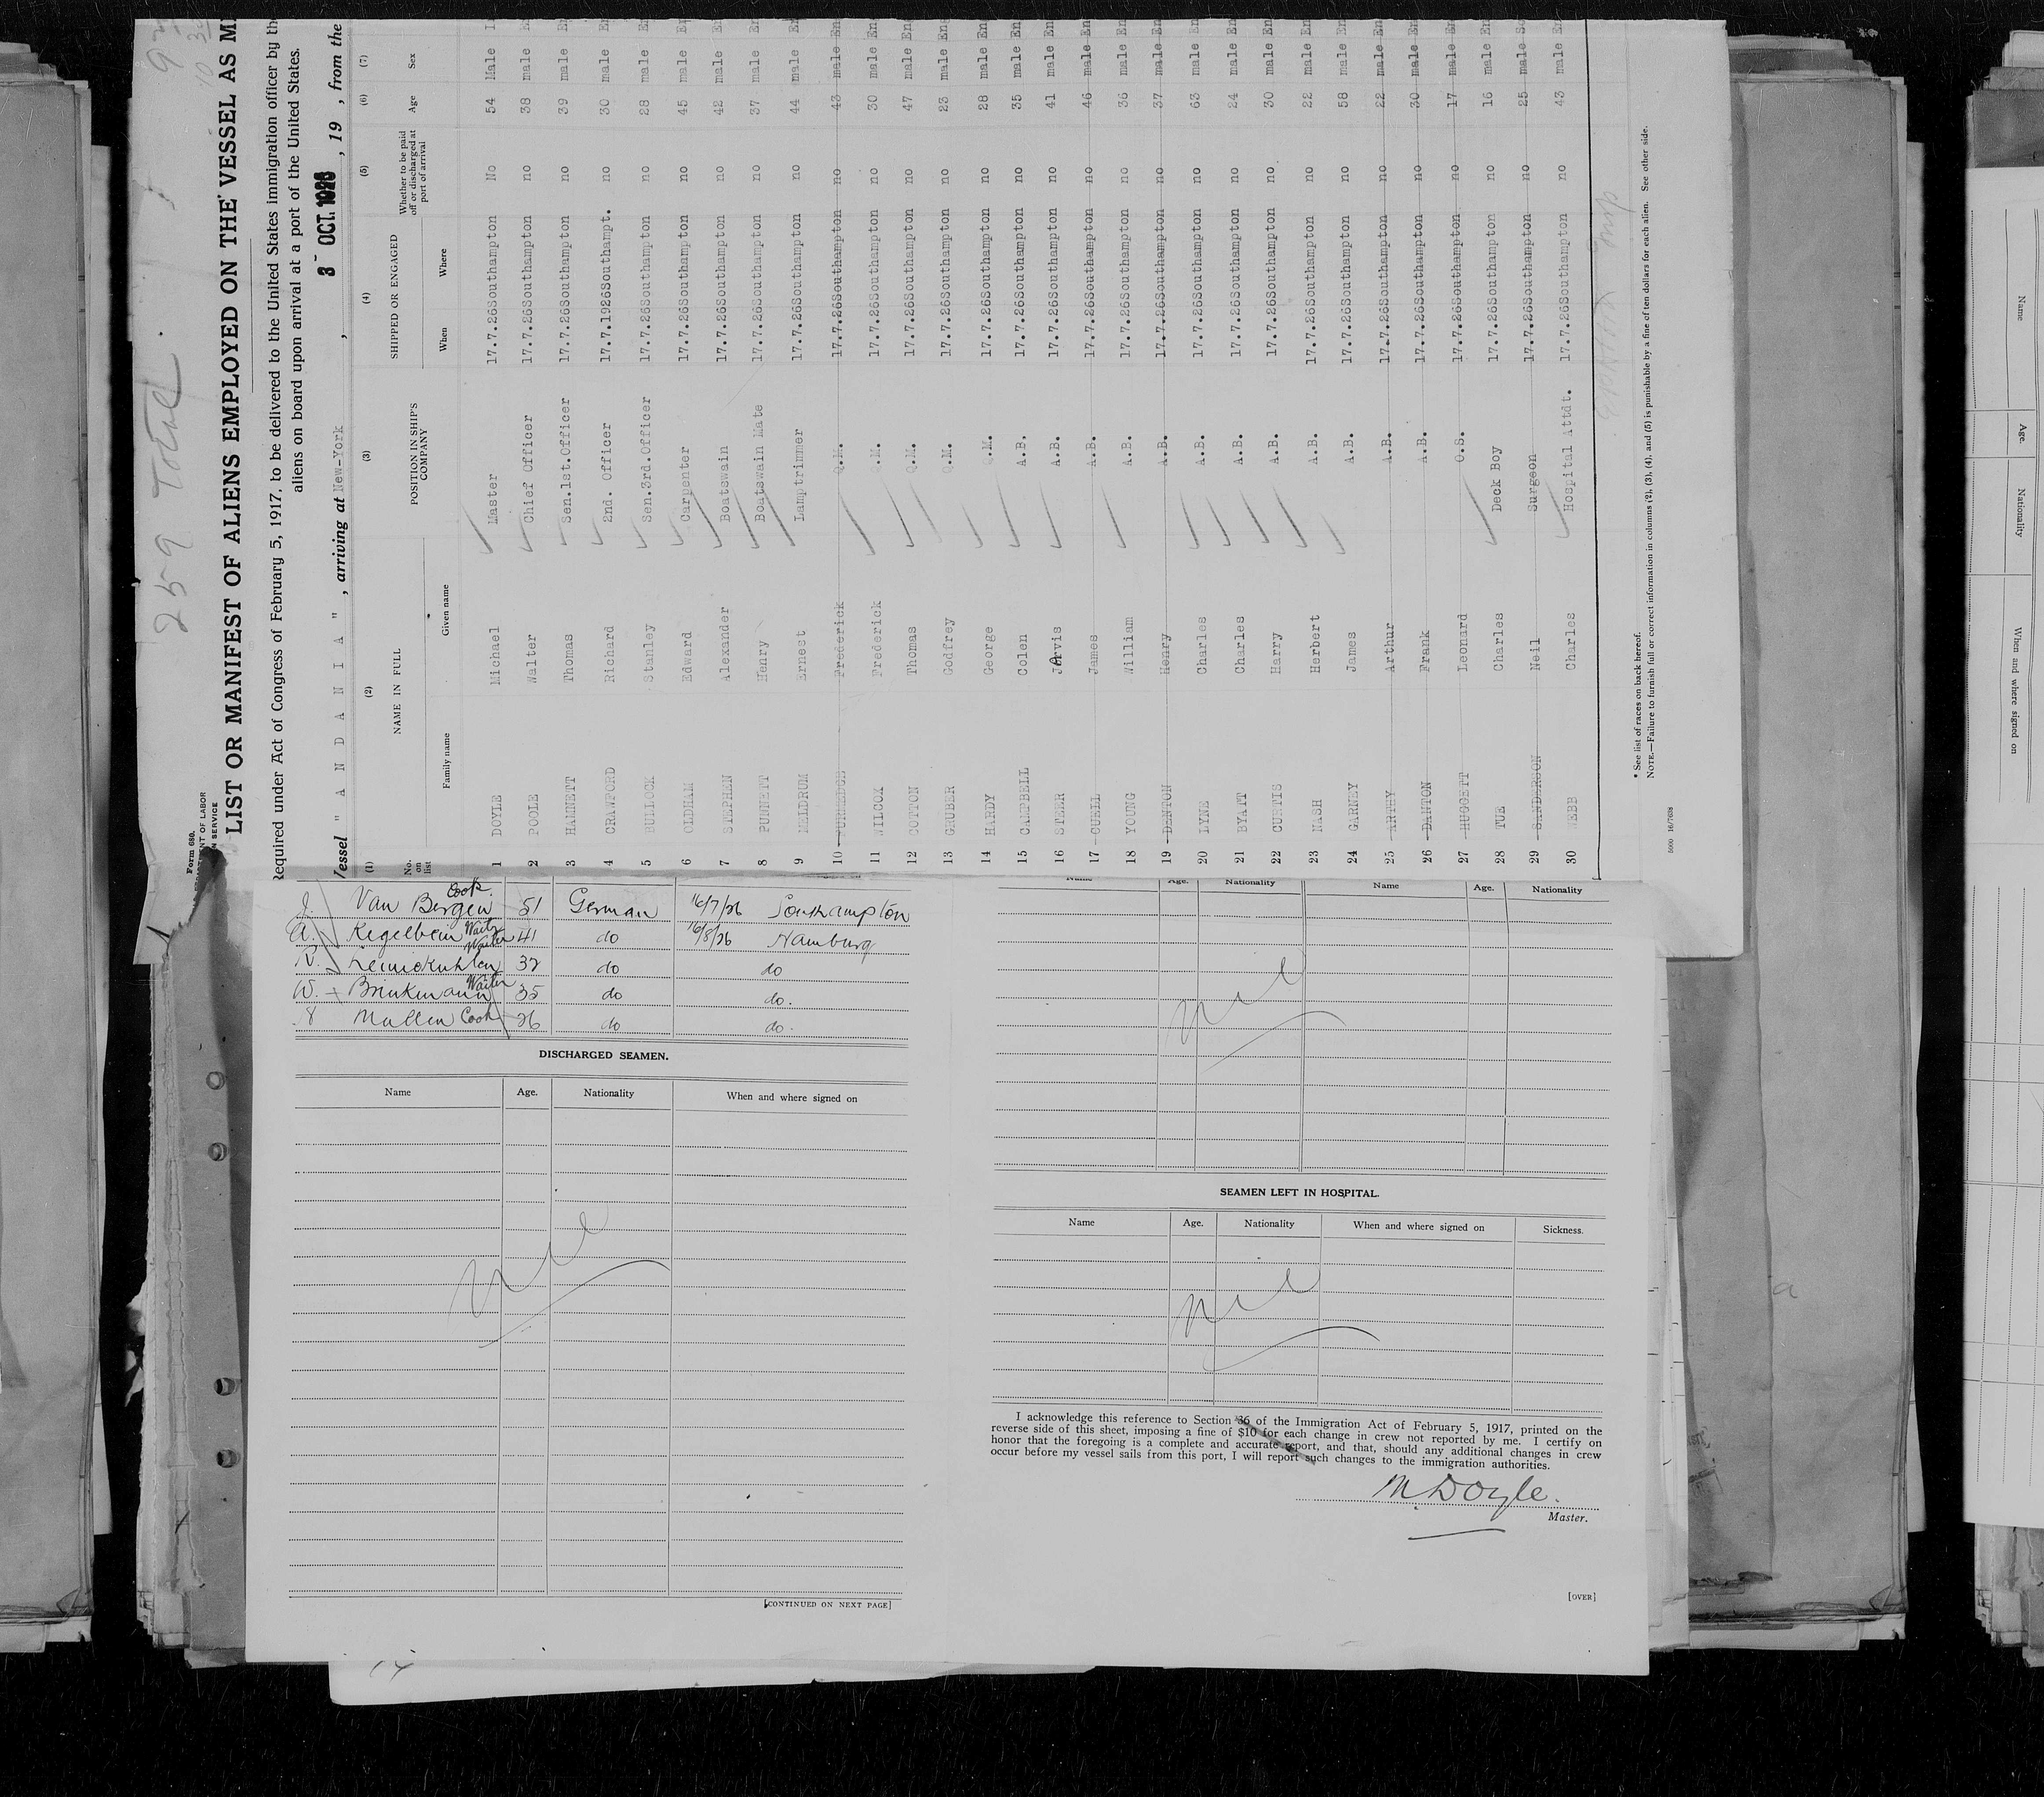 259 Total.
Form 680.
LIST OR MANIFEST OF ALIENS EMPLOYED ON THE VESSEL AS M
Required under Act of Congress of February 5, 1917, to be delivered to the United States immigration officer by th
aliens on board upon arrival at a port of the United States.
Vessel " A N D A N I A " , arriving at New-York , 3 OCT. 1926 , 19 , from the
(1) (2) (3) (4) (5) (6) (7)
No. on list NAME IN FULL POSITION IN SHIP'S COMPANY SHIPPED OR ENGAGED Whether to be paid off or discharged at port of arrival Age Sex
Family name Given name When Where
1 DOYLE Michael Master 17.7.26 Southampton No 54 Male
2 POOLE Walter Chief Officer 17.7.26 Southampton no 38 male
3 HAMNETT Thomas Sen.1st.Officer 17.7.26 Southampton no 39 male
4 CRAWFORD Richard 2nd. Officer 17.7.1926 Southampt. no 30 male
5 BULLOCK Stanley Sen.3rd.Officer 17.7.26 Southampton no 28 male
6 OLDHAM Edward Carpenter 17.7.26 Southampton no 45 male
7 STEPHEN Alexander Boatswain 17.7.26 Southampton no 42 male
8 PUNNETT Henry Boatswain Mate 17.7.26 Southampton no 37 male
9 MELDRUM Ernest Lamptrimmer 17.7.26 Southampton no 44 male
10 Frederick Q.M. 17.7.26 Southampton no 43 male En
11 WILCOX Frederick Q.M. 17.7.26 Southampton no 30 male En
12 COTTON Thomas Q.M. 17.7.26 Southampton no 47 male En
13 GRUBER Godfrey Q.M. 17.7.26 Southampton no 23 male En
14 HARDY George Q.M. 17.7.26 Southampton no 28 male En
15 CAMPBELL Colen A.B. 17.7.26 Southampton no 35 male En
16 STEER Jarvis A.B. 17.7.26 Southampton no 41 male En
17 CUELL James A.B. 17.7.26 Southampton no 46 male En
18 YOUNG William A.B. 17.7.26 Southampton no 36 male En
19 DENTON Henry A.B. 17.7.26 Southampton no 37 male En
20 LYNE Charles A.B. 17.7.26 Southampton no 63 male En
21 BYATT Charles A.B. 17.7.26 Southampton no 24 male En
22 CURTIS Harry A.B. 17.7.26 Southampton no 30 male En
23 NASH Herbert A.B. 17.7.26 Southampton no 22 male En
24 GARNEY James A.B. 17.7.26 Southampton no 58 male En
25 ARTHY Arthur A.B. 17.7.26 Southampton no 22 male En
26 DANTON Frank A.B. 17.7.26 Southampton no 30 male En
27 HUGGETT Leonard O.S. 17.7.26 Southampton no 17 male En
28 TUE Charles Deck Boy 17.7.26 Southampton no 16 male En
29 SANDERSON Neil Surgeon 17.7.26 Southampton no 25 male Sc
30 WEBB Charles Hospital Attdt. 17.7.26 Southampton no 43 male En
* See list of races on back hereof.
NOTE.—Failure to furnish full or correct information in columns (2), (3), (4), and (5) is punishable by a fine of ten dollars for each alien. See other side.
5000 16/7638
J. Van Bergen Cook 51 German 16/7/26 Southampton
A. Kegelbein Waiter 41 do 16/8/26 Hamburg
Waiter 32 do do
W. Brinkmann Waiter 35 do do.
Mullen Cook 26 do do.
DISCHARGED SEAMEN.
Name Age. Nationality When and where signed on
nil
[CONTINUED ON NEXT PAGE]
Name Age. Nationality Name Age. Nationality
nil
SEAMEN LEFT IN HOSPITAL.
Name Age. Nationality When and where signed on Sickness.
nil
I acknowledge this reference to Section 36 of the Immigration Act of February 5, 1917, printed on the
reverse side of this sheet, imposing a fine of $10 for each change in crew not reported by me. I certify on
honor that the foregoing is a complete and accurate report, and that, should any additional changes in crew
occur before my vessel sails from this port, I will report such changes to the immigration authorities.
M. Doyle.
Master.
[OVER]
Name Age. Nationality When and where signed on